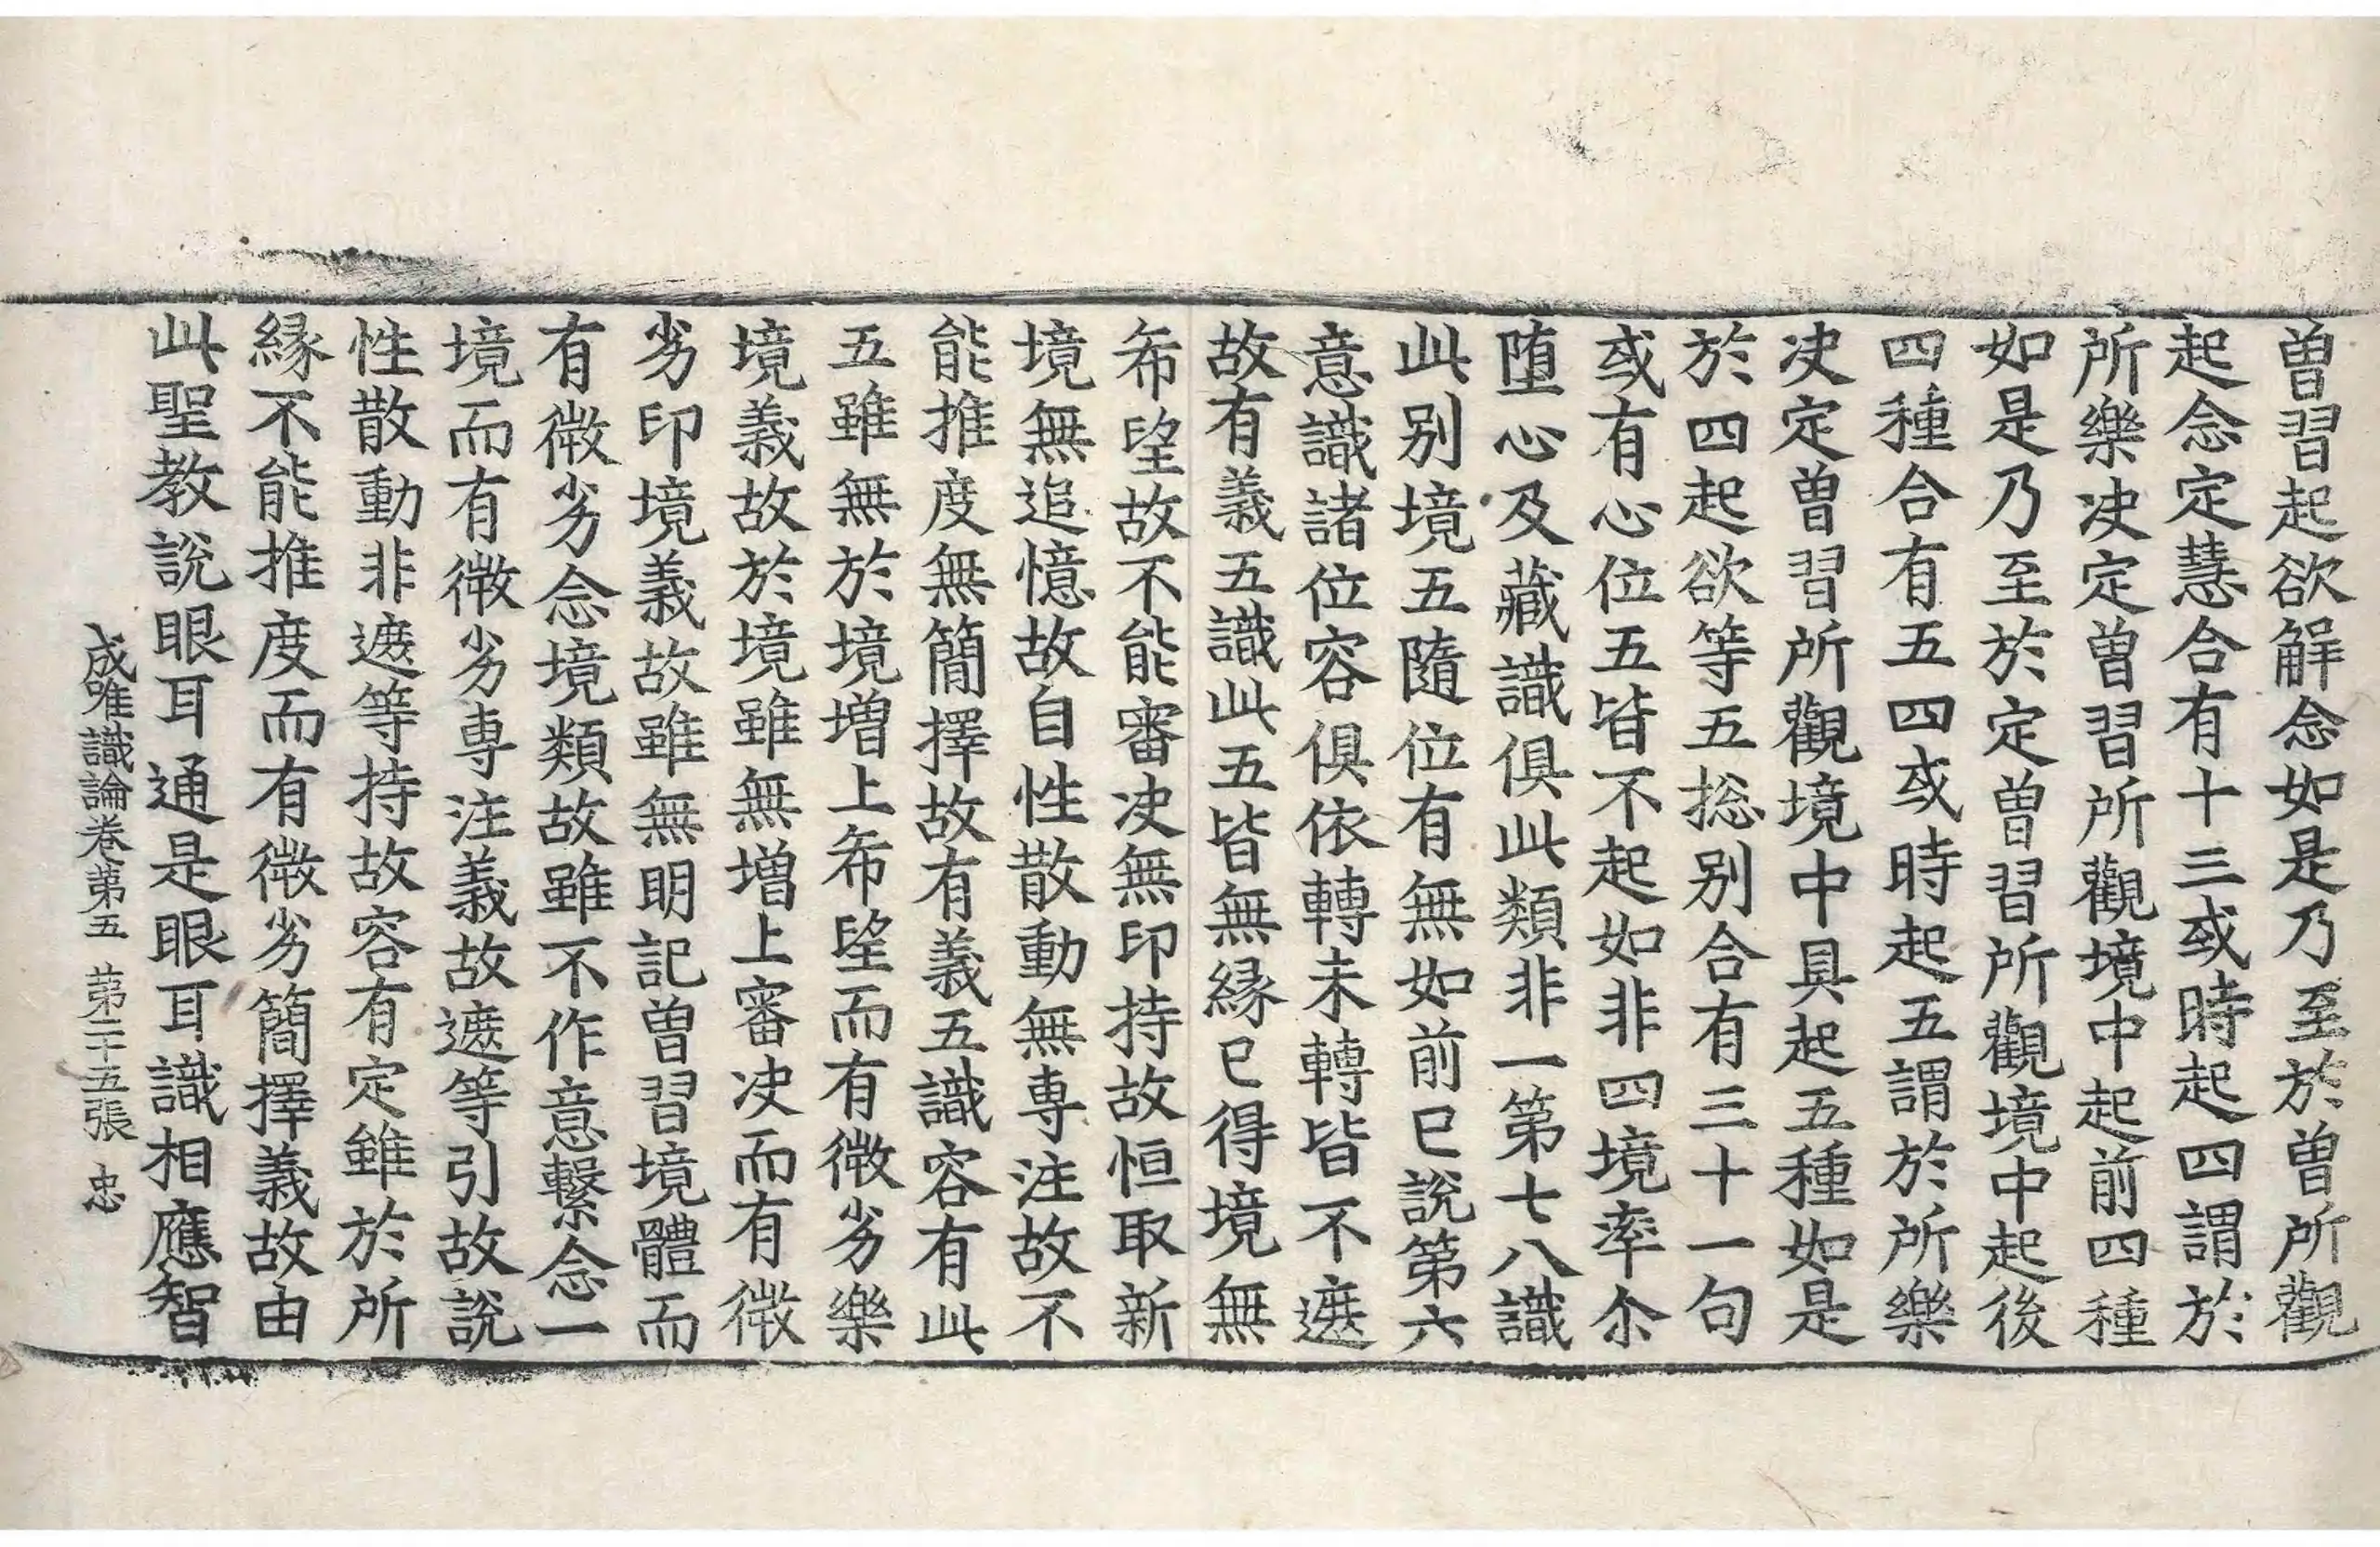 曽習起欲解念如是乃至於曽所觀
起念定慧合有十三或時起四謂於
所樂决定曽習所觀境中起前四種
如是乃至於定曽習所觀境中起後
四種合有五四或時起五謂於所樂
决定曽習所觀境中具起五種如是
於四起欲等五揔别合有三十一句
或有心位五皆不起如非四境率尒
堕心及藏識俱此類非一第七八識
此别境五隨位有無如前已說第六
意識諸位容俱依轉未轉皆不遮
故有義五識此五皆無縁已得境無
希望故不能審决無印持故恒取新
境無追憶故自性散動無専注故不
能推度無簡擇故有義五識容有此
五雖無於境增上希望而有微劣樂
境義故於境雖無增上審决而有微
劣印境義故雖無明記曽習境體而
有微劣念境類故雖不作意繋念一
境而有微劣専注義故遮等引故說
性散動非遮等持故容有定雖於所
縁不能推度而有微劣簡擇義故由
此聖教說眼耳通是眼耳識相應智
成唯識論卷第五 第二十五張 忠